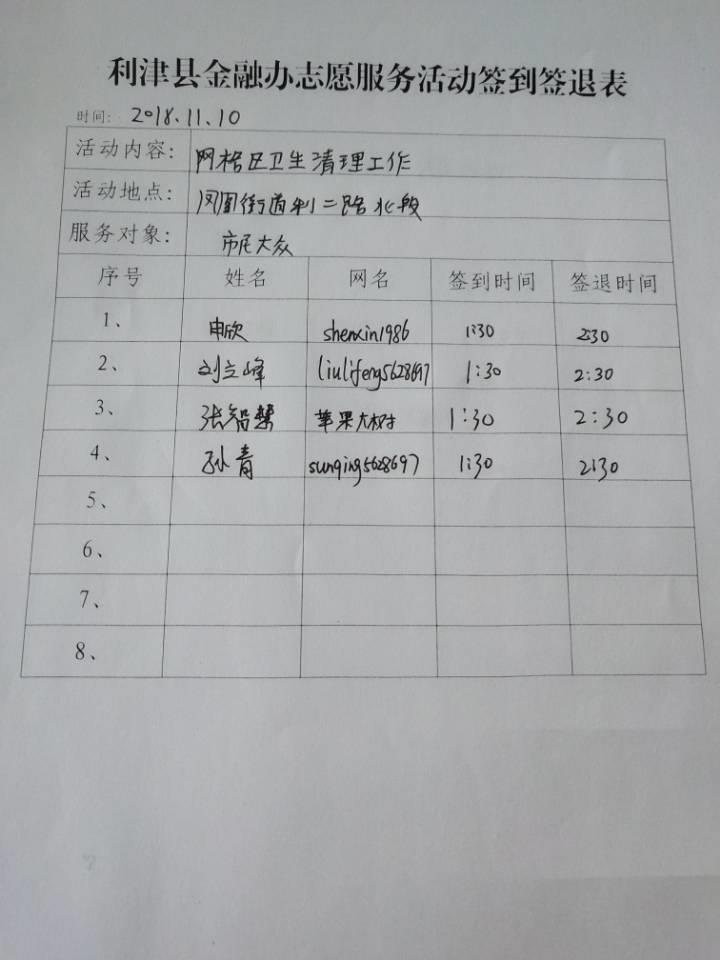 利津县金融办志愿服务活动签到签退表
时间: 2018.11.10
活动内容: 网格区卫生清理工作
活动地点: 凤凰街道利二路北段
服务对象: 市民大众
序号 姓名 网名 签到时间 签退时间
1、 申欣 shenxin1986 1:30 2:30
2、 刘立峰 liulifeng5628697 1:30 2:30
3、 张智慧 苹果大树 1:30 2:30
4、 孙青 sunqing5628697 1:30 2:30
5、
6、
7、
8、